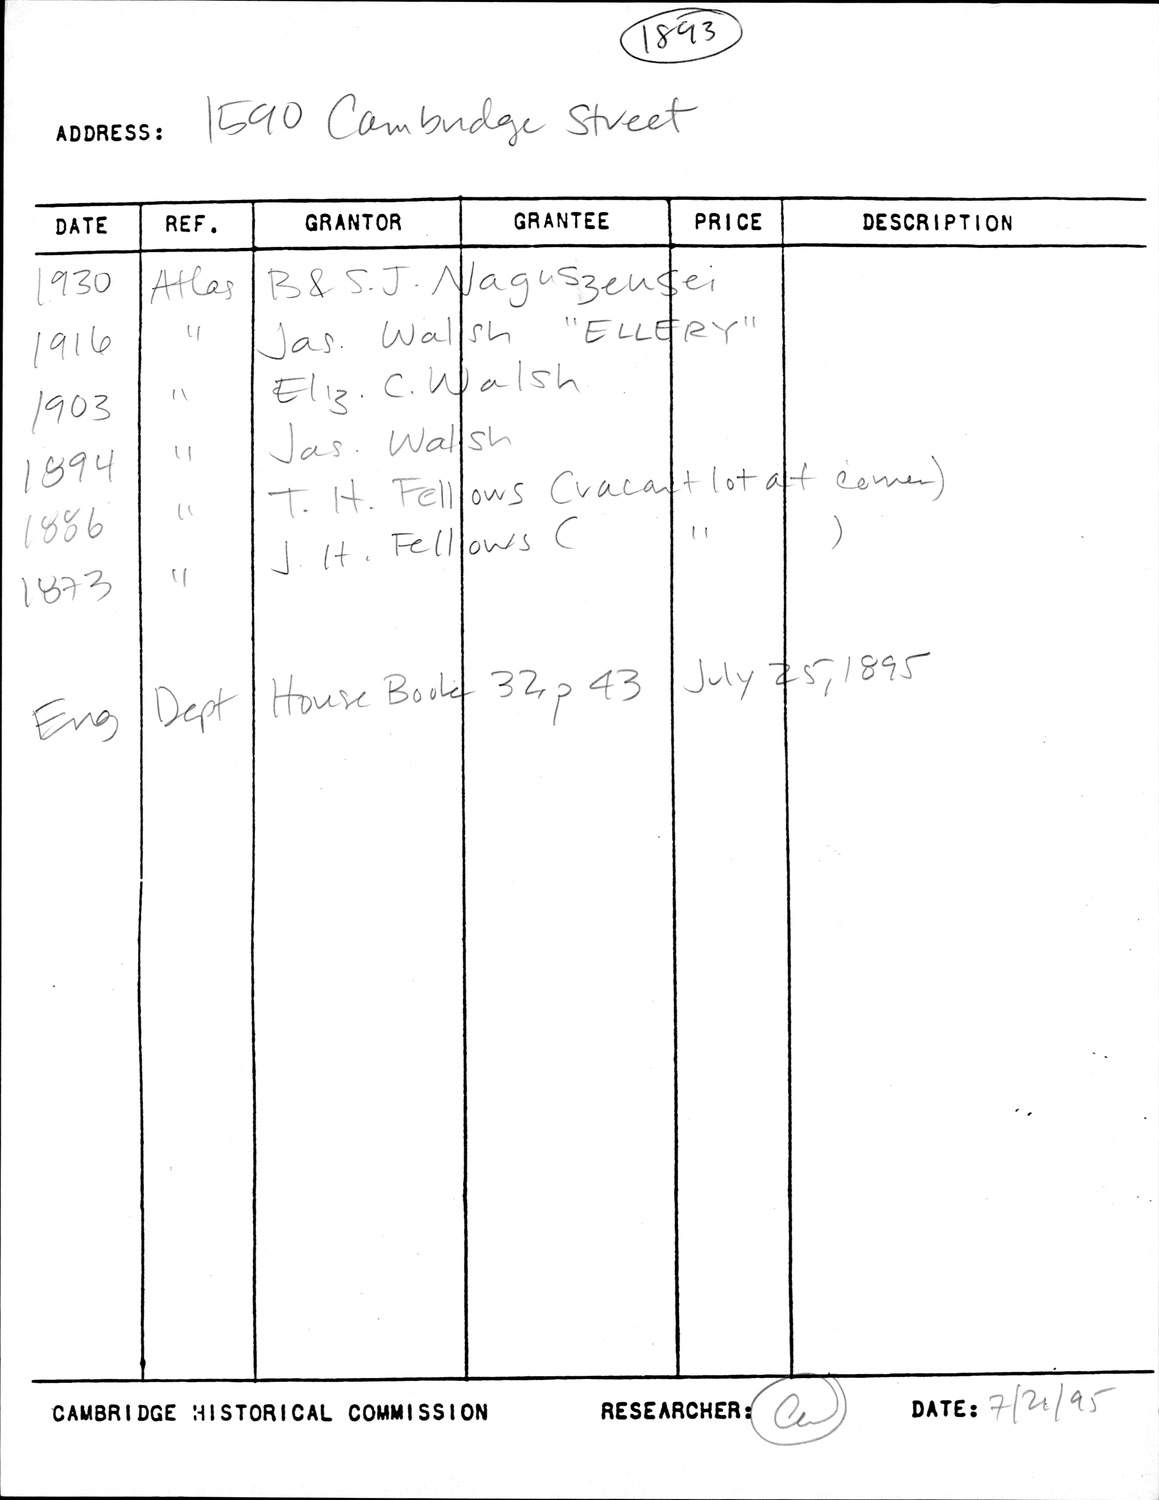 1893
ADDRESS: 1590 Cambridge Street
DATE REF. GRANTOR GRANTEE PRICE DESCRIPTION
1930 Atlas B & S. J. Naguszewsei
1916 " Jas. Walsh "ELLERY"
1903 " Eliz. C. Walsh
1894 " Jas. Walsh
1886 " T. H. Fellows (vacant lot at corner)
1873 " J. H. Fellows ( " )
Eng Dept House Book 32, p 43 July 25, 1895
CAMBRIDGE HISTORICAL COMMISSION RESEARCHER: DATE: 7/21/95